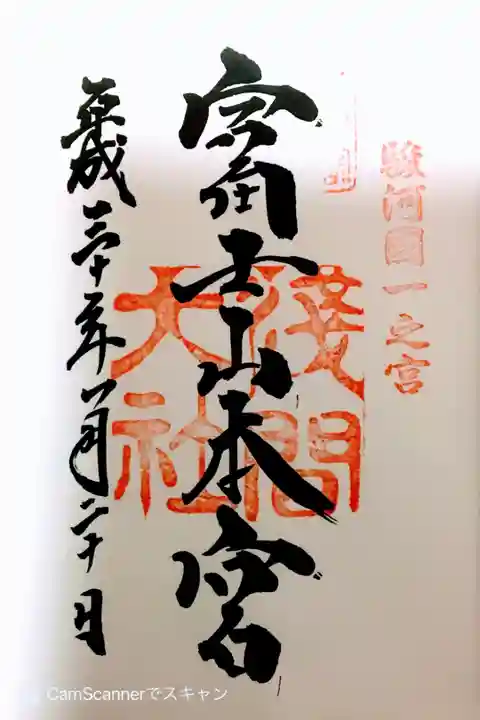 駿河國一之宮
富士山本宮
淺間
大社
平成三十年一月二十日
CamScannerでスキャン